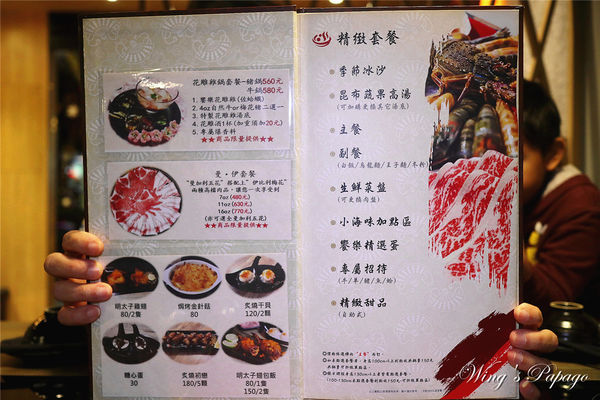 花雕雞鍋套餐-豬鍋560元
牛鍋580元
1. 饗樂花雕雞(佐蛤蠣)
2. 4oz自然牛or梅花豬二選一
3. 特製花雕雞湯底
4. 花雕酒1杯(加量須加20元)
5. 專屬爆香料
★★商品限量提供★★
曼·伊套餐
"曼加利五花" 搭配上" 伊比利梅花"
兩種高檔肉品,讓您一次享受到
7oz (480元)
11oz (630元)
16oz (770元)
(亦可選全曼加利五花)
★★商品限量提供★★
明太子雞翅
80/2隻
焗烤金針菇
80
炙燒干貝
120/2顆
糖心蛋
30
炙燒初戀
180/5顆
明太子翅包飯
80/1隻
150/2隻
精緻套餐
季節冰沙
昆布蔬果高湯
(可加購更換其它湯底)
主餐
副餐
(白飯/烏龍麵/王子麵/冬粉)
生鮮菜盤
(可更換肉盤)
小海味加點區
饗樂精選蛋
專屬招待
(牛/羊/豬/魚/蛤)
精緻甜品
(自助式)
Wing's Papago